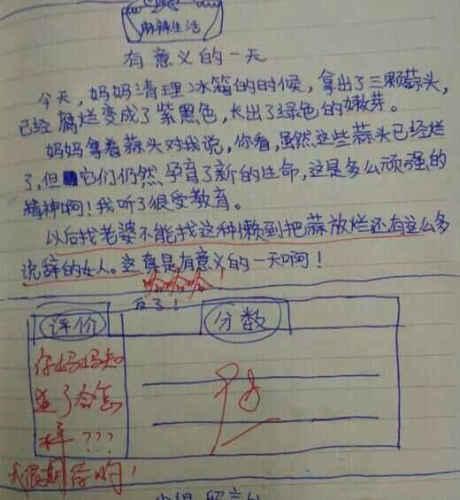 麻辣生活
有意义的一天
今天，妈妈清理冰箱的的时候，拿出了三颗蒜头，
已经腐烂变成了紫黑色，长出了绿色的嫩芽。
妈妈拿着蒜头对我说，你看，虽然这些蒜头已经烂
了，但它们仍然孕育了新的生命，这是多么顽强的
精神啊！我听了很受教育。
以后找老婆不能找这种懒到把蒜放烂还有这么多
说辞的女人。这真是有意义的一天啊！
哈哈哈
反了！
评价
分数
你妈妈知
道了会怎
样???